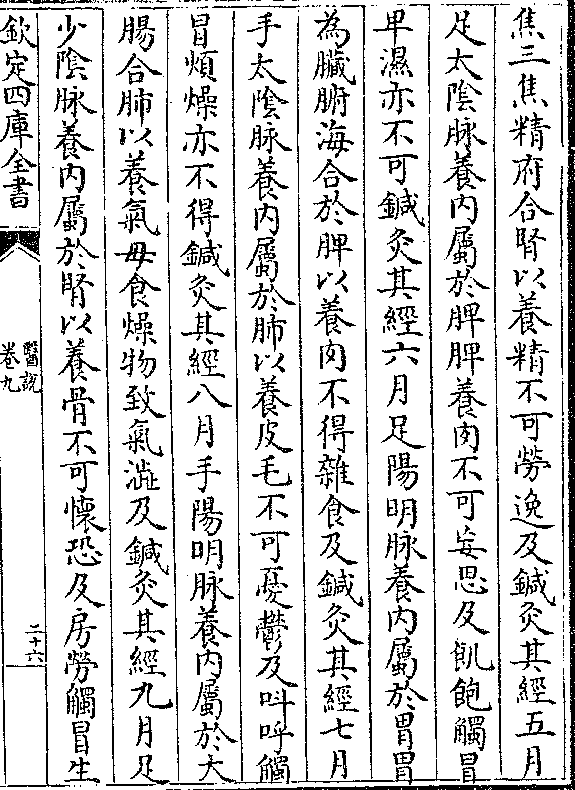 焦三焦精府合腎以養精不可勞逸及鍼灸其經五月
足太陰脉養内屬於脾脾養肉不可妄思及飢飽觸冒
卑濕亦不可鍼灸其經六月足陽明脉養内屬於胃胃
為臟腑海合於脾以養肉不得雜食及鍼灸其經七月
手太陰脉養内屬於肺以養皮毛不可憂鬱及叫呼觸
冒煩燥亦不得鍼灸其經八月手陽明脉養内屬於大
腸合肺以養氣毋食燥物致氣澁及鍼灸其經九月足
少陰脉養内屬於腎以養骨不可懷恐及房勞觸冒生
欽定四庫全書
醫説
卷九
二十六